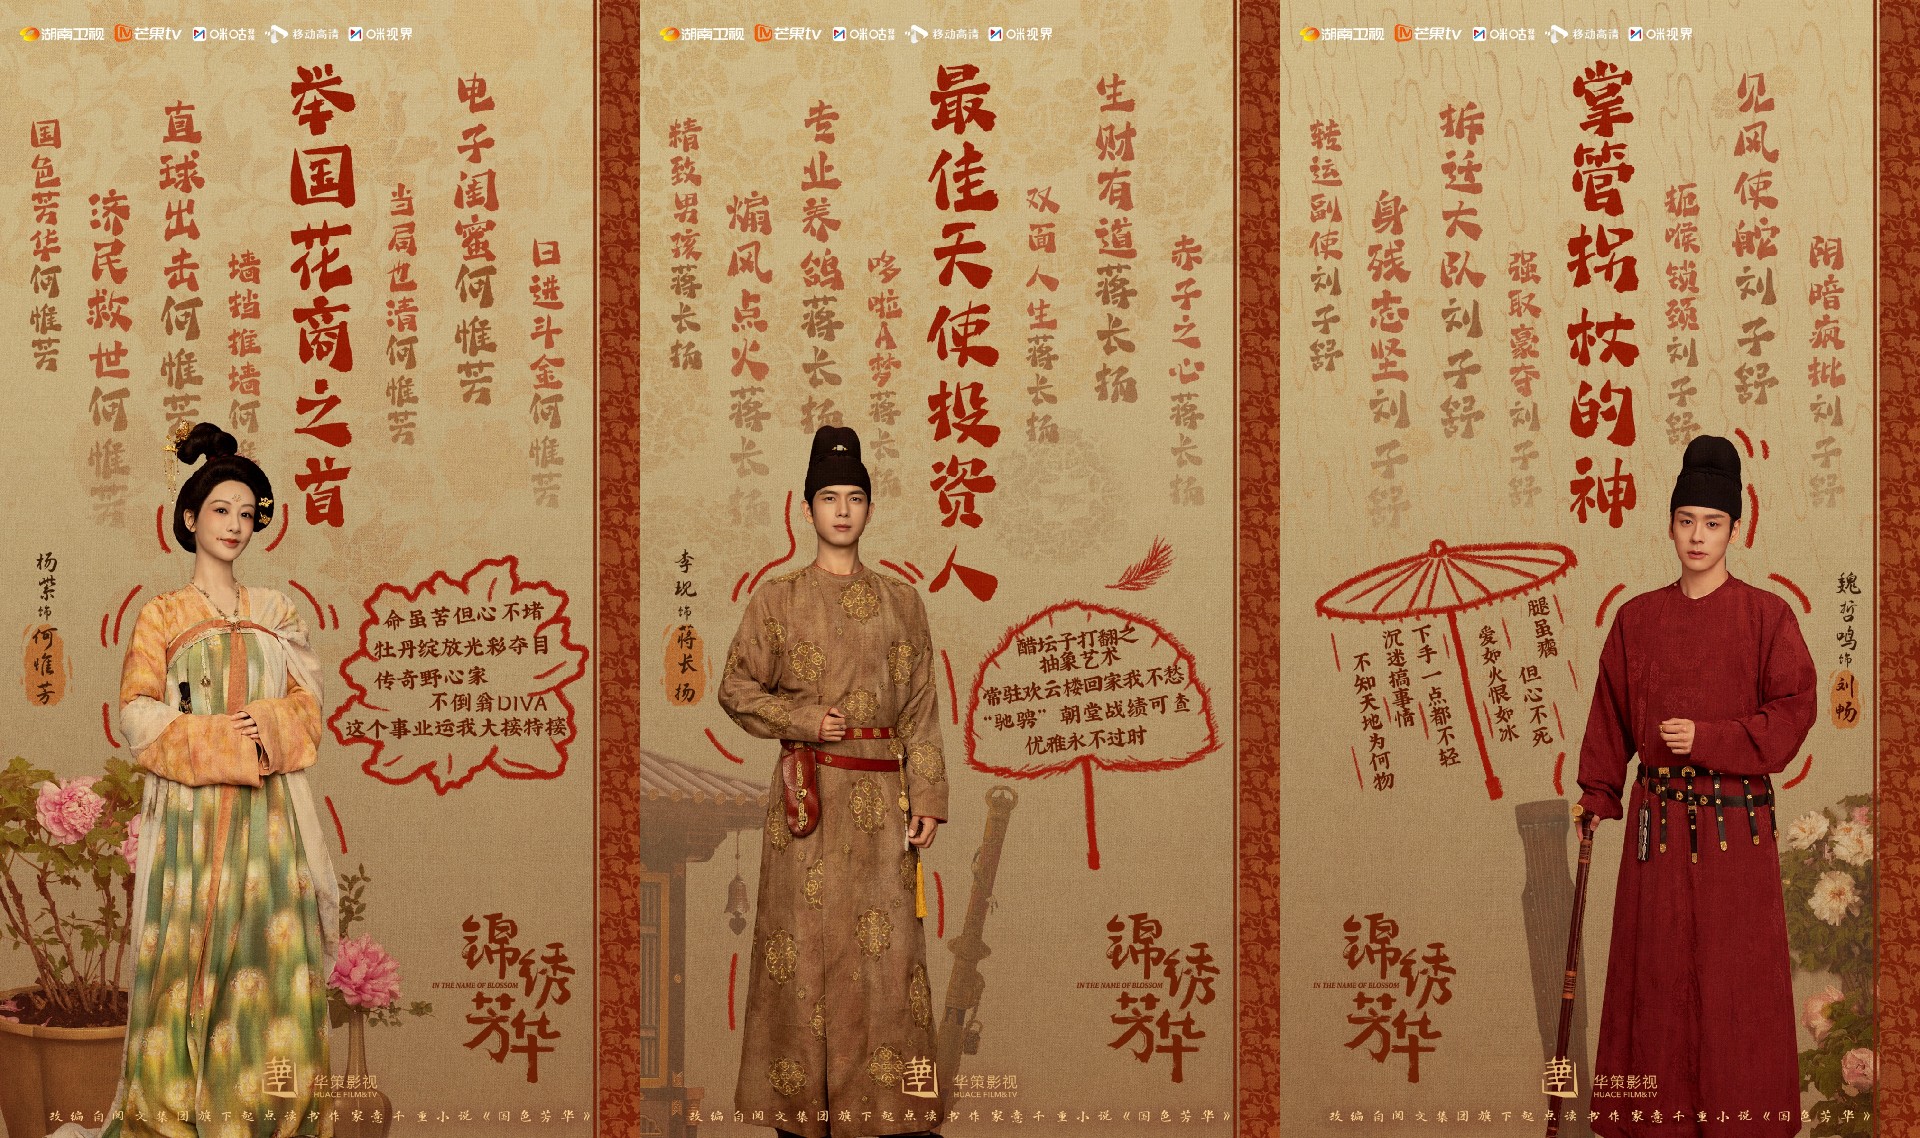 湖南卫视 芒果tv 咪咕视频 移动高清 咪视界
国色芳华何惟芳
济民救世何惟芳
直球出击何惟芳
墙挡推墙何惟
举国花商之首
当局也清何惟芳
电子闺蜜何惟芳
日进斗金何惟芳
杨紫 饰 何惟芳
命虽苦但心不堵
牡丹绽放光彩夺目
传奇野心家
不倒翁DIVA
这个事业运我大接特接
锦绣芳华
IN THE NAME OF BLOSSOM
华策影视
HUACE FILM&TV
改编自阅文集团旗下起点读书作家意千重小说《国色芳华》
湖南卫视 芒果tv 咪咕视频 移动高清 咪视界
精致男孩蒋长扬
煽风点火蒋长扬
专业养鸽蒋长扬
哆啦A梦蒋长扬
最佳天使投资人
双面人生蒋长扬
生财有道蒋长扬
赤子之心蒋长扬
李现 饰 蒋长扬
醋坛子打翻之
抽象艺术
常驻欢云楼回家我不愁
“驰骋”朝堂战绩可查
优雅永不过时
锦绣芳华
IN THE NAME OF BLOSSOM
华策影视
HUACE FILM&TV
改编自阅文集团旗下起点读书作家意千重小说《国色芳华》
湖南卫视 芒果tv 咪咕视频 移动高清 咪视界
转运副使刘子舒
身残志坚刘子舒
拆迁大队刘子舒
强取豪夺刘子舒
掌管拐杖的神
扼喉锁颈刘子舒
见风使舵刘子舒
阴暗疯批刘子舒
魏哲鸣 饰 刘畅
腿虽瘸 但心不死
爱如火恨如冰
下手一点都不轻
沉迷搞事情
不知天地为何物
锦绣芳华
IN THE NAME OF BLOSSOM
华策影视
HUACE FILM&TV
改编自阅文集团旗下起点读书作家意千重小说《国色芳华》